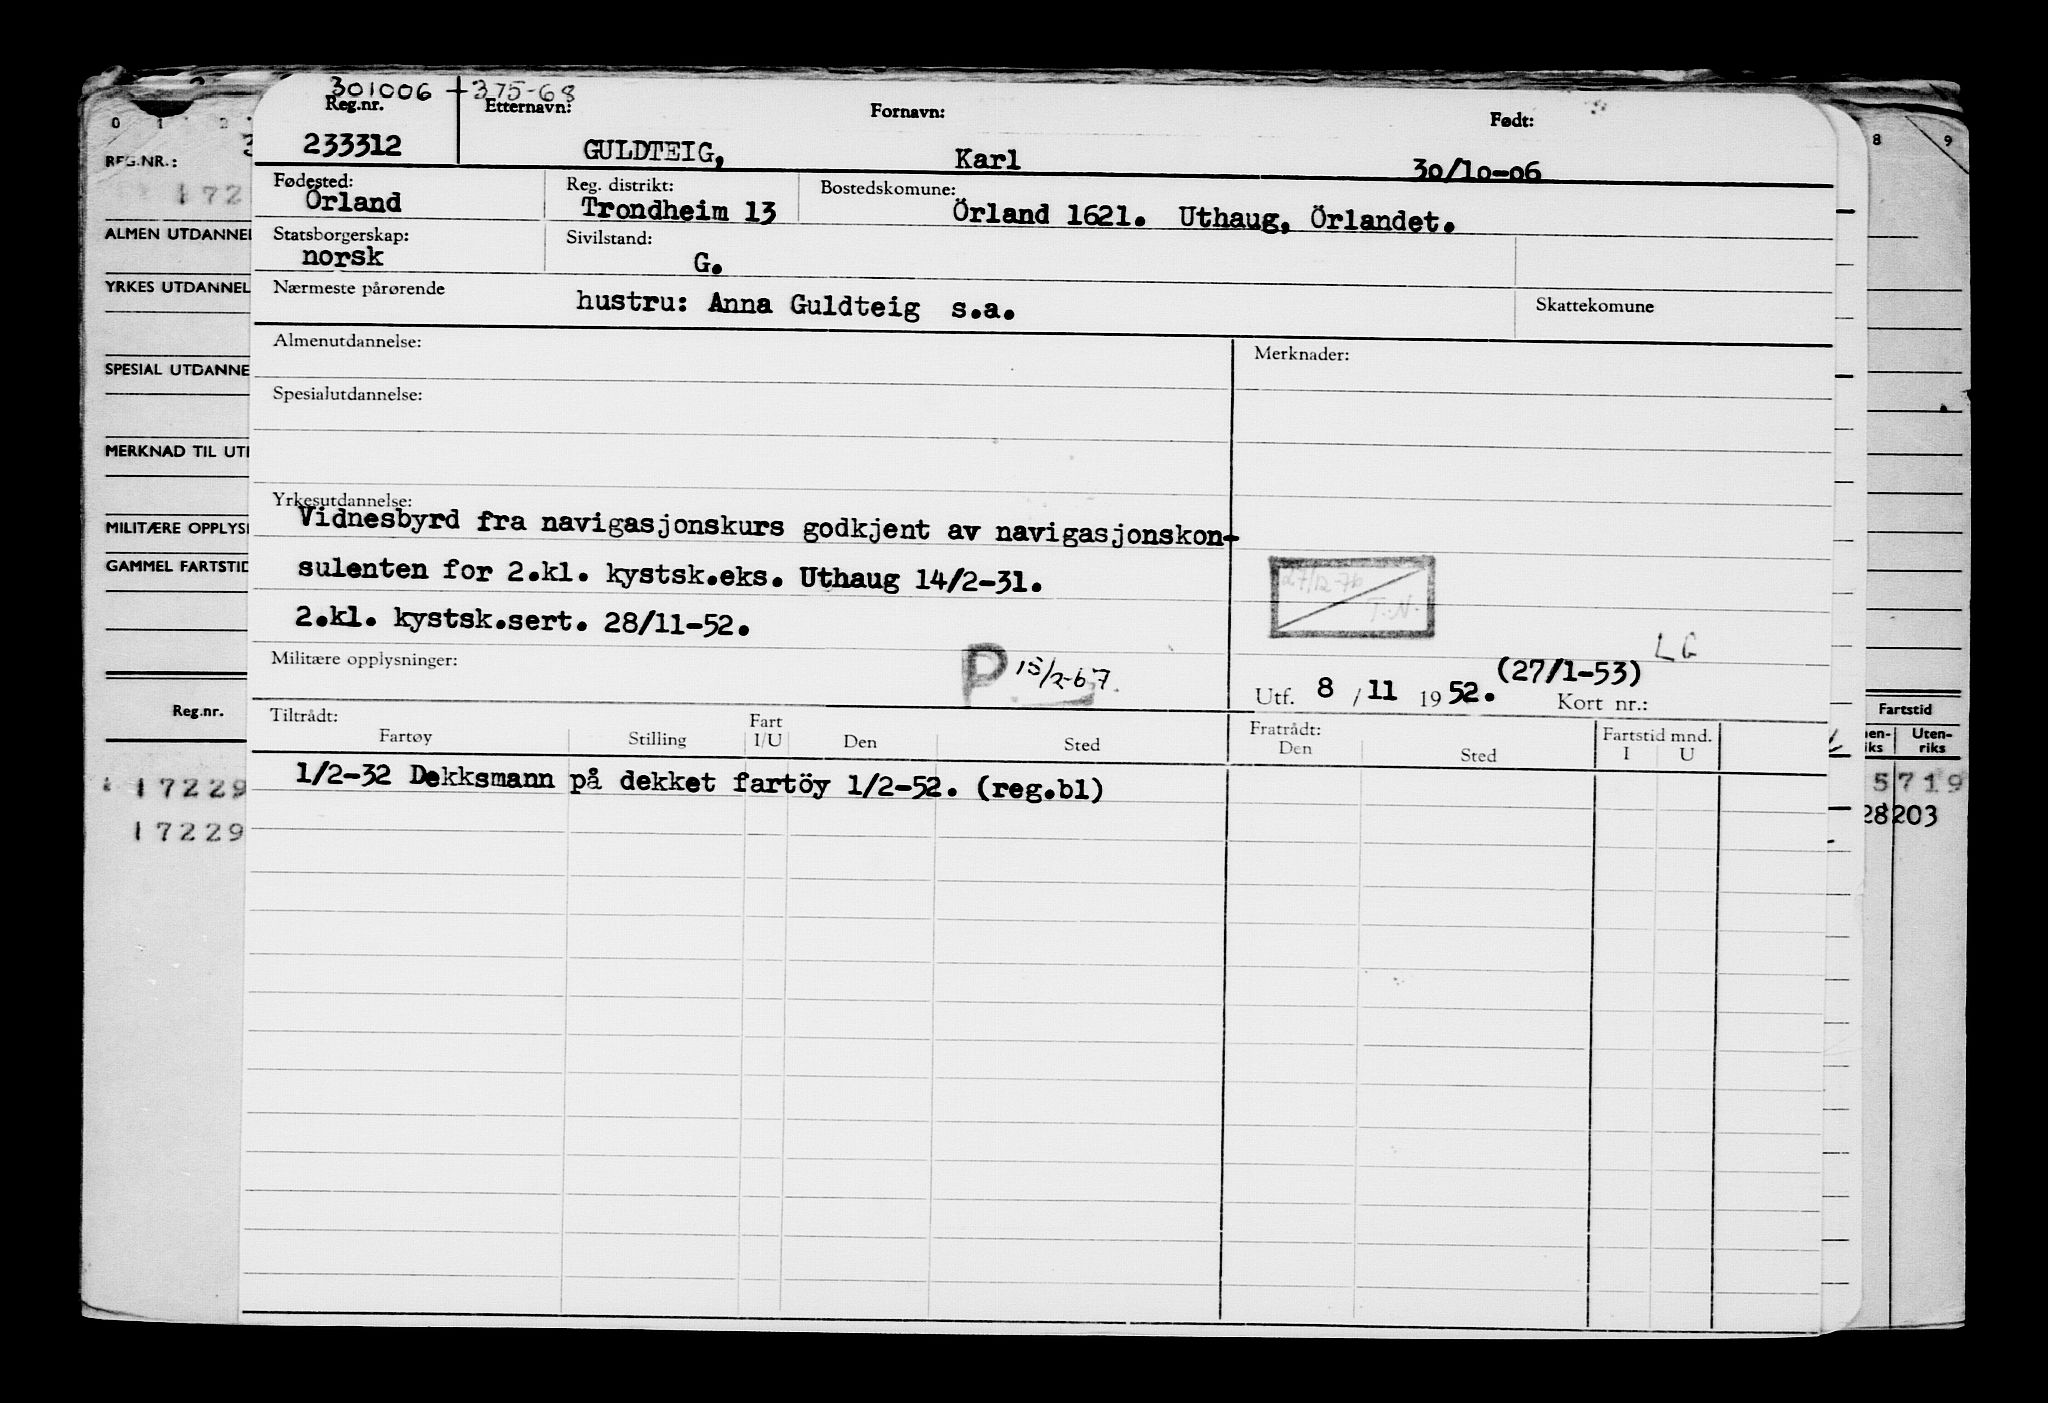 301006 + 375-68
Reg.nr. Etternavn: Fornavn: Født:
233312 GULDTEIG, Karl 30/10-06
Fødested: Reg. distrikt: Bostedskomune:
Örland Trondheim 13 Örland 1621. Uthaug, Örlandet.
Statsborgerskap: Sivilstand:
norsk G.
Nærmeste pårørende hustru: Anna Guldteig s.a. Skattekomune
Almenutdannelse: Merknader:
Spesialutdannelse:
Yrkesutdannelse:
Vidnesbyrd fra navigasjonskurs godkjent av navigasjonskon-
sulenten for 2.kl. kystsk.eks. Uthaug 14/2-31.
2.kl. kystsk.sert. 28/11-52.
27/12-76
T.N.
LG
Militære opplysninger: P 15/2-67. (27/1-53)
Utf. 8 / 11 1952. Kort nr.:
Tiltrådt: Fratrådt:
Fartøy Stilling Fart I/U Den Sted Den Sted Fartstid mnd. I U
1/2-32 Dekksmann på dekket fartöy 1/2-52. (reg.bl)
0 1 2 8 9
REG.NR.:
172
ALMEN UTDANNEL
YRKES UTDANNEL
SPESIAL UTDANNE
MERKNAD TIL UT
MILITÆRE OPPLYS
GAMMEL FARTSTID
Reg.nr.
17229
17229
Fartstid
en-
iks
Uten-
riks
5719
28203